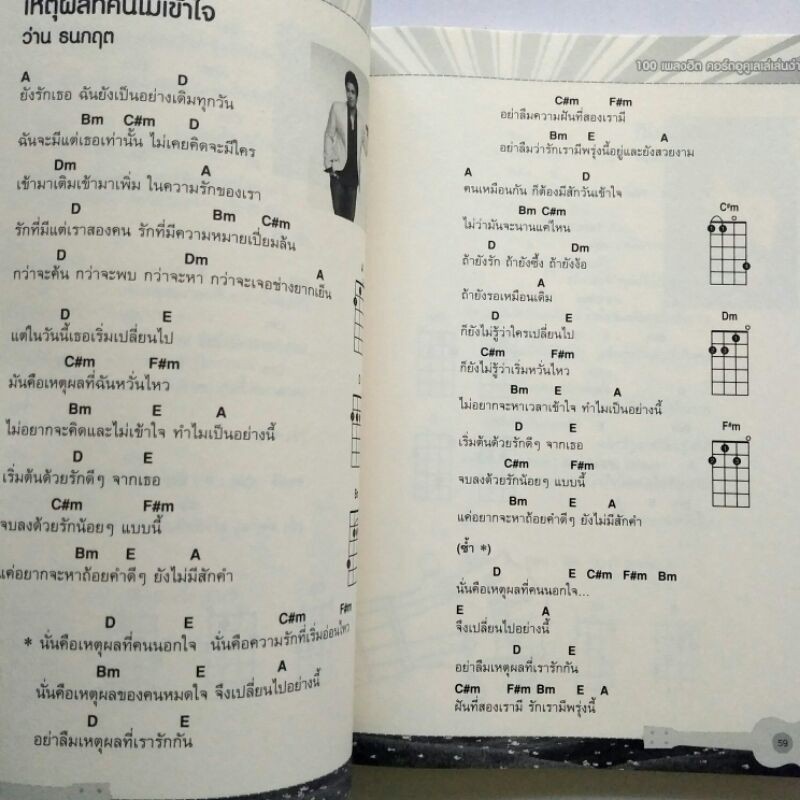 เหตุผลที่คนไม่เข้าใจ
ว่าน ธนกฤต
A D
ยังรักเธอ ฉันยังเป็นอย่างเดิมทุกวัน
Bm C#m D
ฉันจะมีแต่เธอเท่านั้น ไม่เคยคิดจะมีใคร
Dm A
เข้ามาเติมเข้ามาเพิ่ม ในความรักของเรา
D Bm C#m
รักที่มีแต่เราสองคน รักที่มีความหมายเปี่ยมล้น
D Dm A
กว่าจะค้น กว่าจะพบ กว่าจะหา กว่าจะเจอช่างยากเย็น
D E
แต่ในวันนี้เธอเริ่มเปลี่ยนไป
C#m F#m
มันคือเหตุผลที่ฉันหวั่นไหว
Bm E A
ไม่อยากจะคิดและไม่เข้าใจ ทำไมเป็นอย่างนี้
D E
เริ่มต้นด้วยรักดีๆ จากเธอ
C#m F#m
จบลงด้วยรักน้อยๆ แบบนี้
Bm E A
แค่อยากจะหาถ้อยคำดีๆ ยังไม่มีสักคำ
D E C#m F#m
* นั่นคือเหตุผลที่คนนอกใจ นั่นคือความรักที่เริ่มอ่อนไหว
Bm E A
นั่นคือเหตุผลของคนหมดใจ จึงเปลี่ยนไปอย่างนี้
D E
อย่าลืมเหตุผลที่เรารักกัน
100 เพลงฮิต คอร์ดอูคูเลเล่เล่นง่า
C#m F#m
อย่าลืมความฝันที่สองเรามี
Bm E A
อย่าลืมว่ารักเรามีพรุ่งนี้อยู่และยังสวยงาม
A D
คนเหมือนกัน ก็ต้องมีสักวันเข้าใจ
Bm C#m
ไม่ว่ามันจะนานแค่ไหน
D Dm
ถ้ายังรัก ถ้ายังซึ้ง ถ้ายังง้อ
A
ถ้ายังรอเหมือนเดิม
D E
ก็ยังไม่รู้ว่าใครเปลี่ยนไป
C#m F#m
ก็ยังไม่รู้ว่าเริ่มหวั่นไหว
Bm E A
ไม่อยากจะหาเวลาเข้าใจ ทำไมเป็นอย่างนี้
D E
เริ่มต้นด้วยรักดีๆ จากเธอ
C#m F#m
จบลงด้วยรักน้อยๆ แบบนี้
Bm E A
แค่อยากจะหาถ้อยคำดีๆ ยังไม่มีสักคำ
(ซ้ำ *)
D E C#m F#m Bm
นั่นคือเหตุผลที่คนนอกใจ...
E A
จึงเปลี่ยนไปอย่างนี้
D E
อย่าลืมเหตุผลที่เรารักกัน
C#m F#m Bm E A
ฝันที่สองเรามี รักเรามีพรุ่งนี้
C#m
Dm
F#m
59